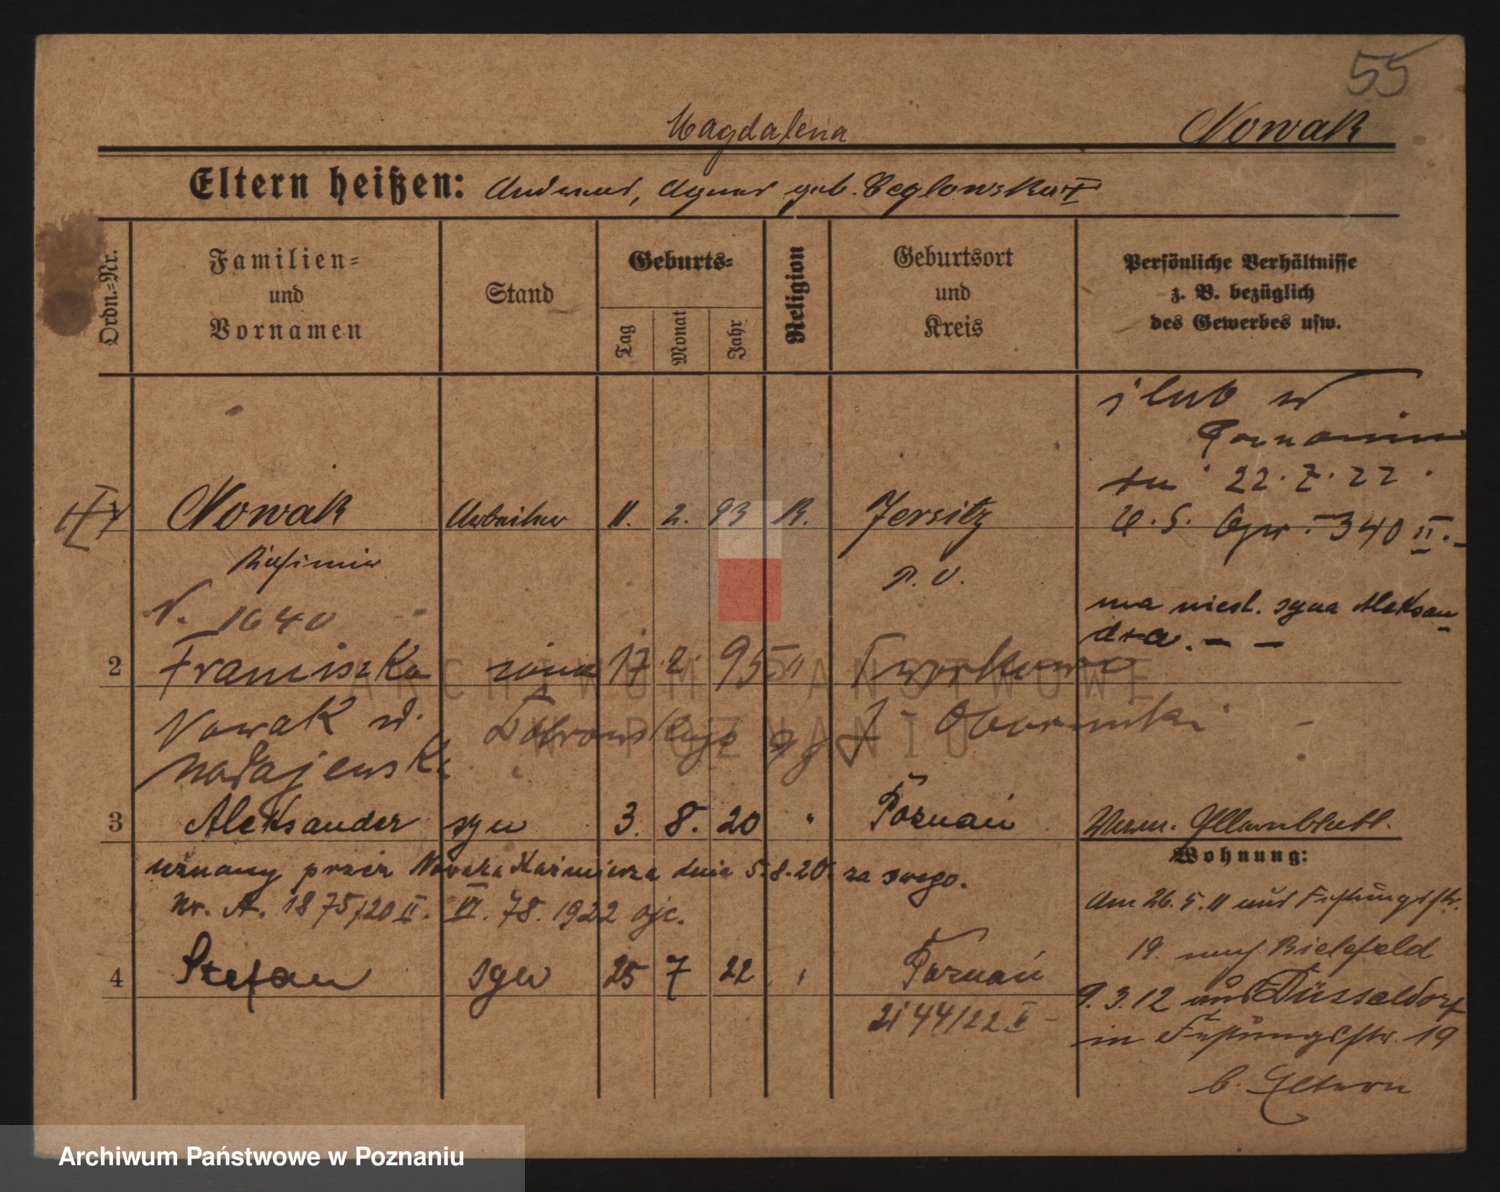 55
Magdalena
Nowak
Eltern heißen: Andreas, Agnes geb. Ceglowska
Ordn.-Nr.
Familien-
und
Vornamen
Stand
Geburts-
Tag
Monat
Jahr
Religion
Geburtsort
und
Kreis
Persönliche Verhältnisse
z. B. bezüglich
des Gewerbes usw.
ślub w
Poznaniu
dn 22.7.22
U.S. 340 II.
1 Nowak Arbeiter 11. 2. 93 K. Jersitz
Kasimir
P. O.
N. 1640
ma nieśl. syna Aleksan-
dra. - -
2 Franciszka żona 17 2 95 "
Nowak
Obornicki
3 Aleksander syn 3. 8. 20 " Poznań
uznany przez Nowaka Kaźmierza dnia 5.8.20. za swego.
Nr. A. 1875/20 II. VI. 78. 1922
4 Stefan syn 25 7 22 " Poznań
2144/22 II -
Wohnung:
Am 26.5.11 aus Festungsstr.
19. nach Bielefeld
9.3.12 aus Düsseldorf
in Festungsstr. 19
b. Eltern
ARCHIWUM PAŃSTWOWE
W POZNANIU
Archiwum Państwowe w Poznaniu